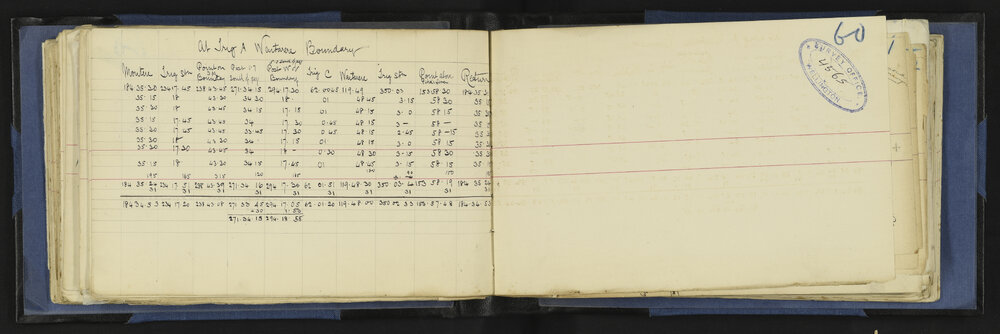 At Trig A Waitarere Boundary
Moutere Trig Stn Point on Boundary Peg 17 Boundary Trig C Waitarere Trig Stn Return
184.35.30 234.17.45 238.43.45 271.34.15 294.17.30 62.00.45 119.49 350.03 153.58.30 184.35.3
35.15 18 43.30 34.30 18 01 48.45 3.15 58 30 35 15
35 30 18 43.45 34 17.15 01 48 15 3.0 58 15 35 3
35 15 17.45 43.45 34 17 30 0.45 48 15 3 — 58 — 35
35 30 17 45 43.45 33.45 17 30 0 45 48 15 2.45 58 —15 35
35 30 18 43 30 34 17.15 01 48 15 3.0 58 15 35 3
35 30 17 30 43.45 34 18 — 0.30 48 30 3.15 58 30 35
35.15 18 43.30 34 15 17.45 01 48.45 3.15 58 15 35
195 165 315 120 165 120 90 150
184 35 24 234 17 51 238 43 39 271 34 16 294 17 36 62 01 51 119.48.30 350 03 4 153 58 19 184 35 24
31 31 31 31 31 31 31 31
184 34 53 234 17 20 238 43 08 271 33 45 294 17.05 62 01 20 119.48 00 350 02 33 153.57.48 184.34.53
+30 1.50
271.34.15 294.18 55
60
SURVEY OFFICE
4565
WELLINGTON